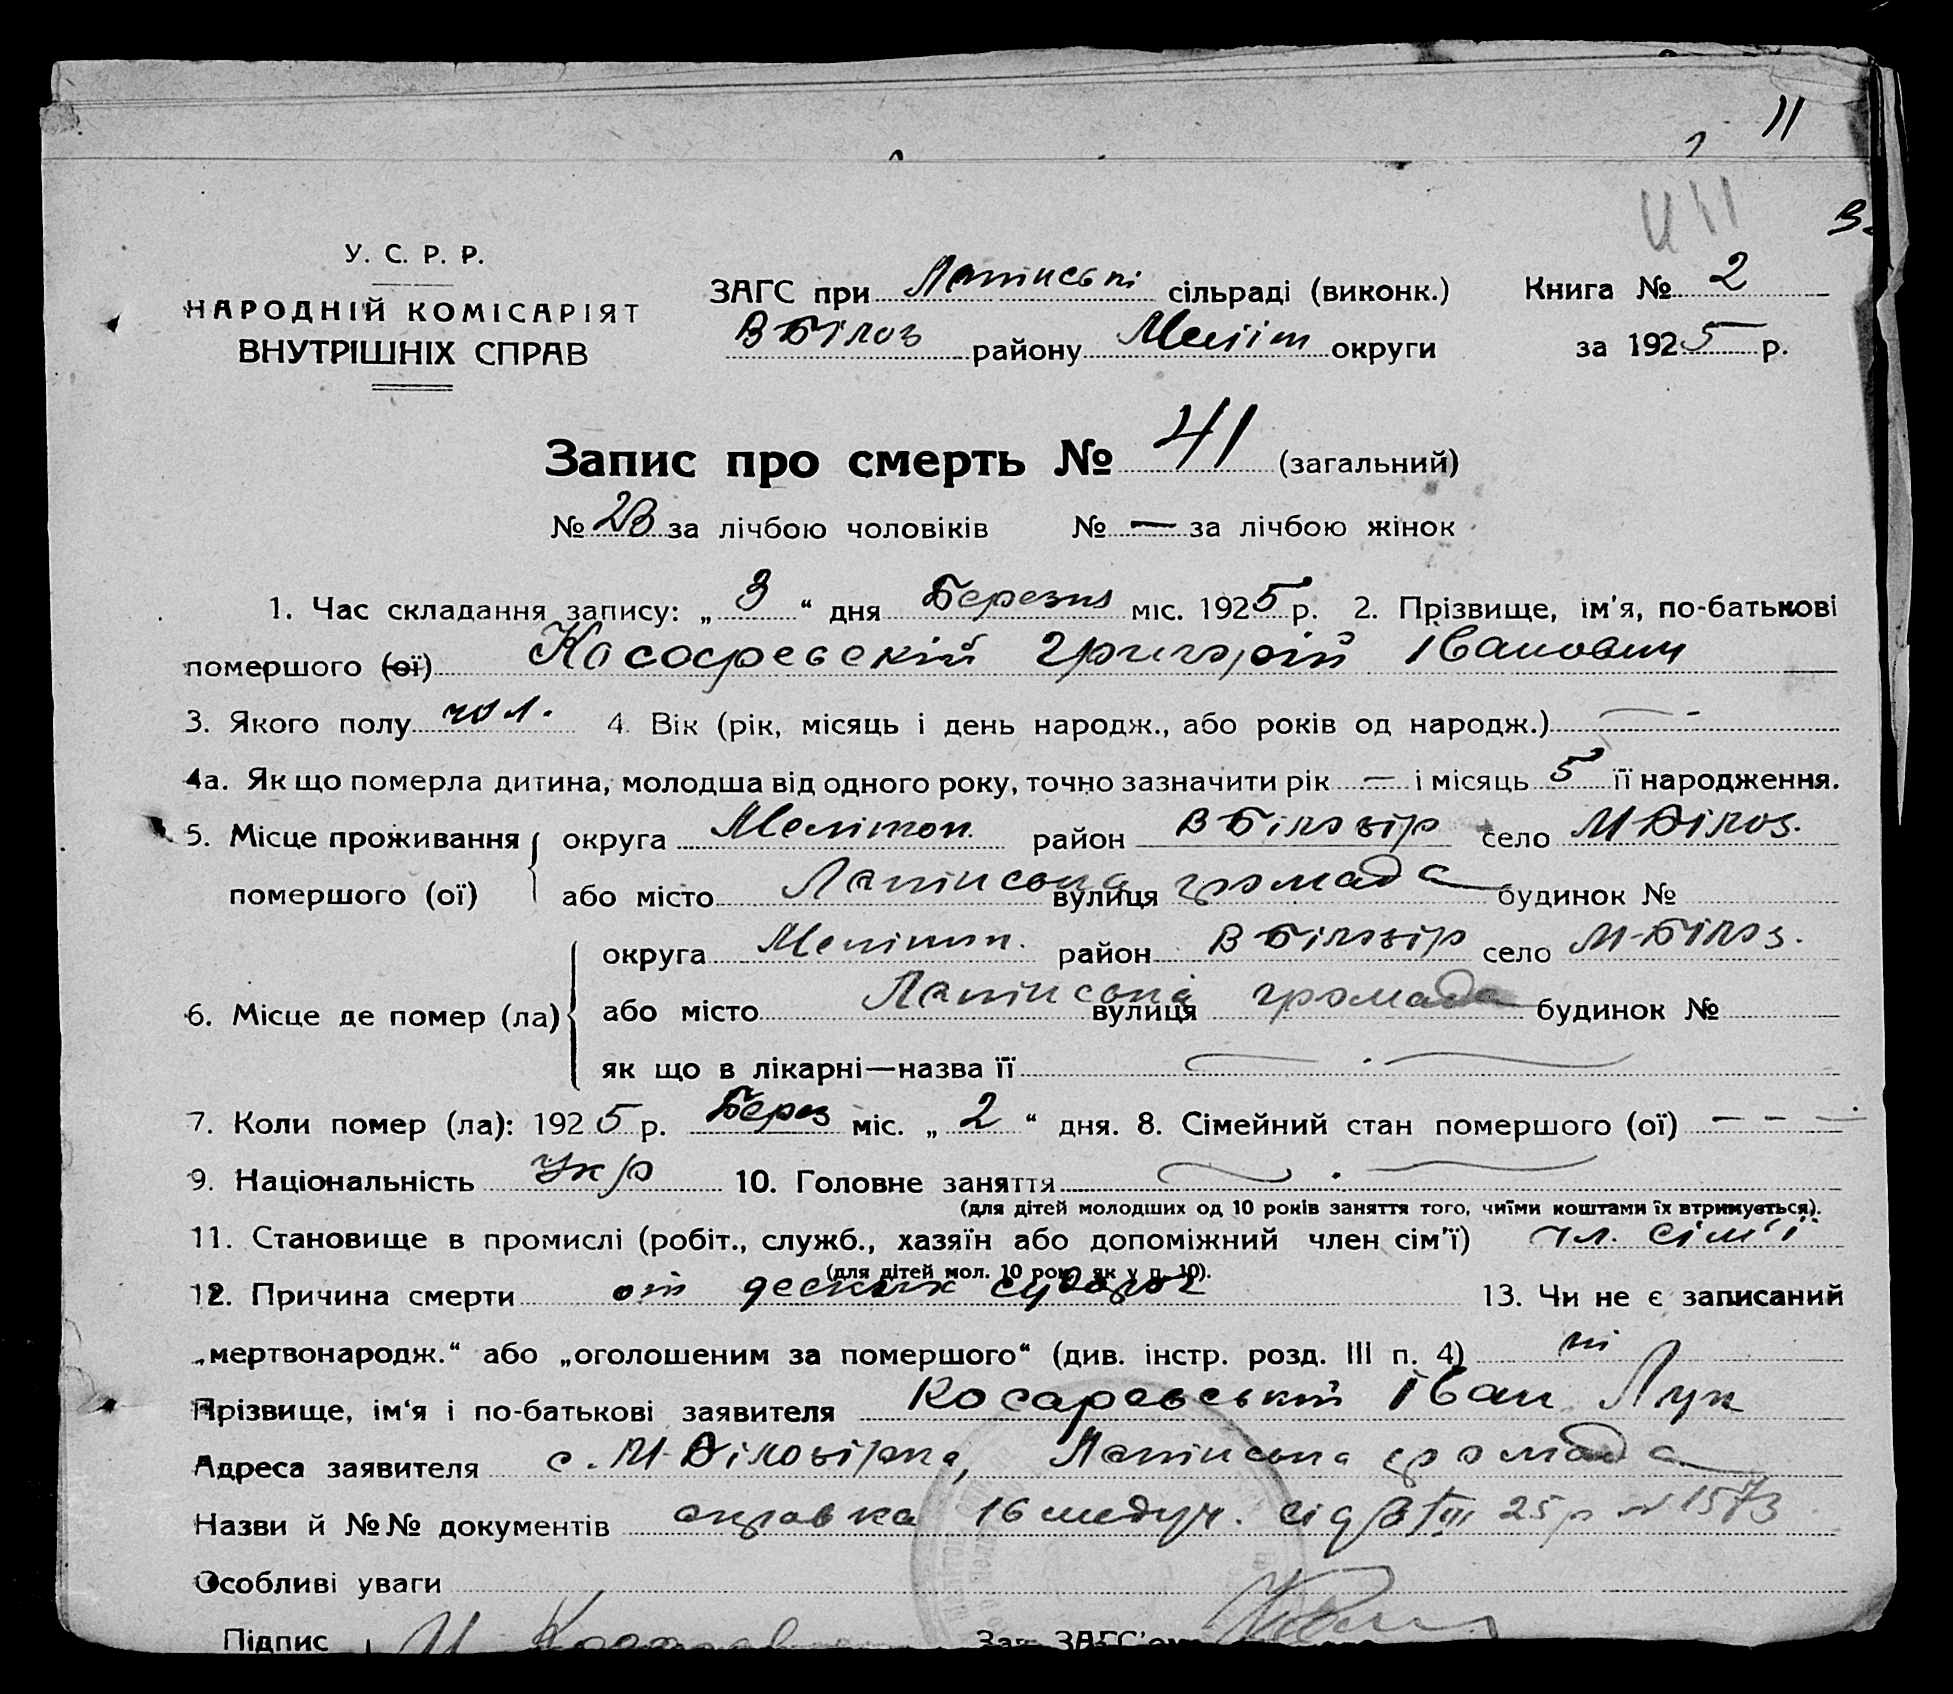 11
У. С. Р. Р.
НАРОДНІЙ КОМІСАРІЯТ
ВНУТРІШНІХ СПРАВ
ЗАГС при сільраді (виконк.) Книга № 2
В Білоз району Меліт округи за 1925 р.
Запис про смерть № 41 (загальний)
№ 23 за лічбою чоловіків № — за лічбою жінок
1. Час складання запису: „ 3 “ дня Березня міс. 1925 р. 2. Прізвище, ім'я, по-батькові
помершого (ої) Григорій Іванович
3. Якого полу чол. 4. Вік (рік, місяць і день народж., або років од народж.) —
4а. Як що померла дитина, молодша від одного року, точно зазначити рік — і місяць 5 її народження.
5. Місце проживання округа Мелітоп. район В Білозір село М Білоз.
помершого (ої) або місто вулиця громада будинок №
округа Мелітоп. район В Білозір село М-Білоз.
6. Місце де помер (ла) або місто вулиця громада будинок №
як що в лікарні—назва її —
7. Коли помер (ла): 1925 р. Берез міс. „ 2 “ дня. 8. Сімейний стан помершого (ої) - - -
9. Національність Укр 10. Головне заняття —
(для дітей молодших од 10 років заняття того, чиїми коштами їх втримується).
11. Становище в промислі (робіт., служб., хазяїн або допоміжний член сім'ї) чл. сім'ї
(для дітей мол. 10 рок. як у п. 10).
12. Причина смерти от 13. Чи не є записаний
„мертвонародж.“ або „оголошеним за помершого“ (див. інстр. розд. III п. 4) ні
Прізвище, ім'я і по-батькові заявителя Косаревський Іван Лук
Адреса заявителя с. М-Білозірка, громада
Назви й №№ документів справка 16 медуч. від 3/III 25 р № 1573
Особливі уваги
Підпис Зав. ЗАГС'ом